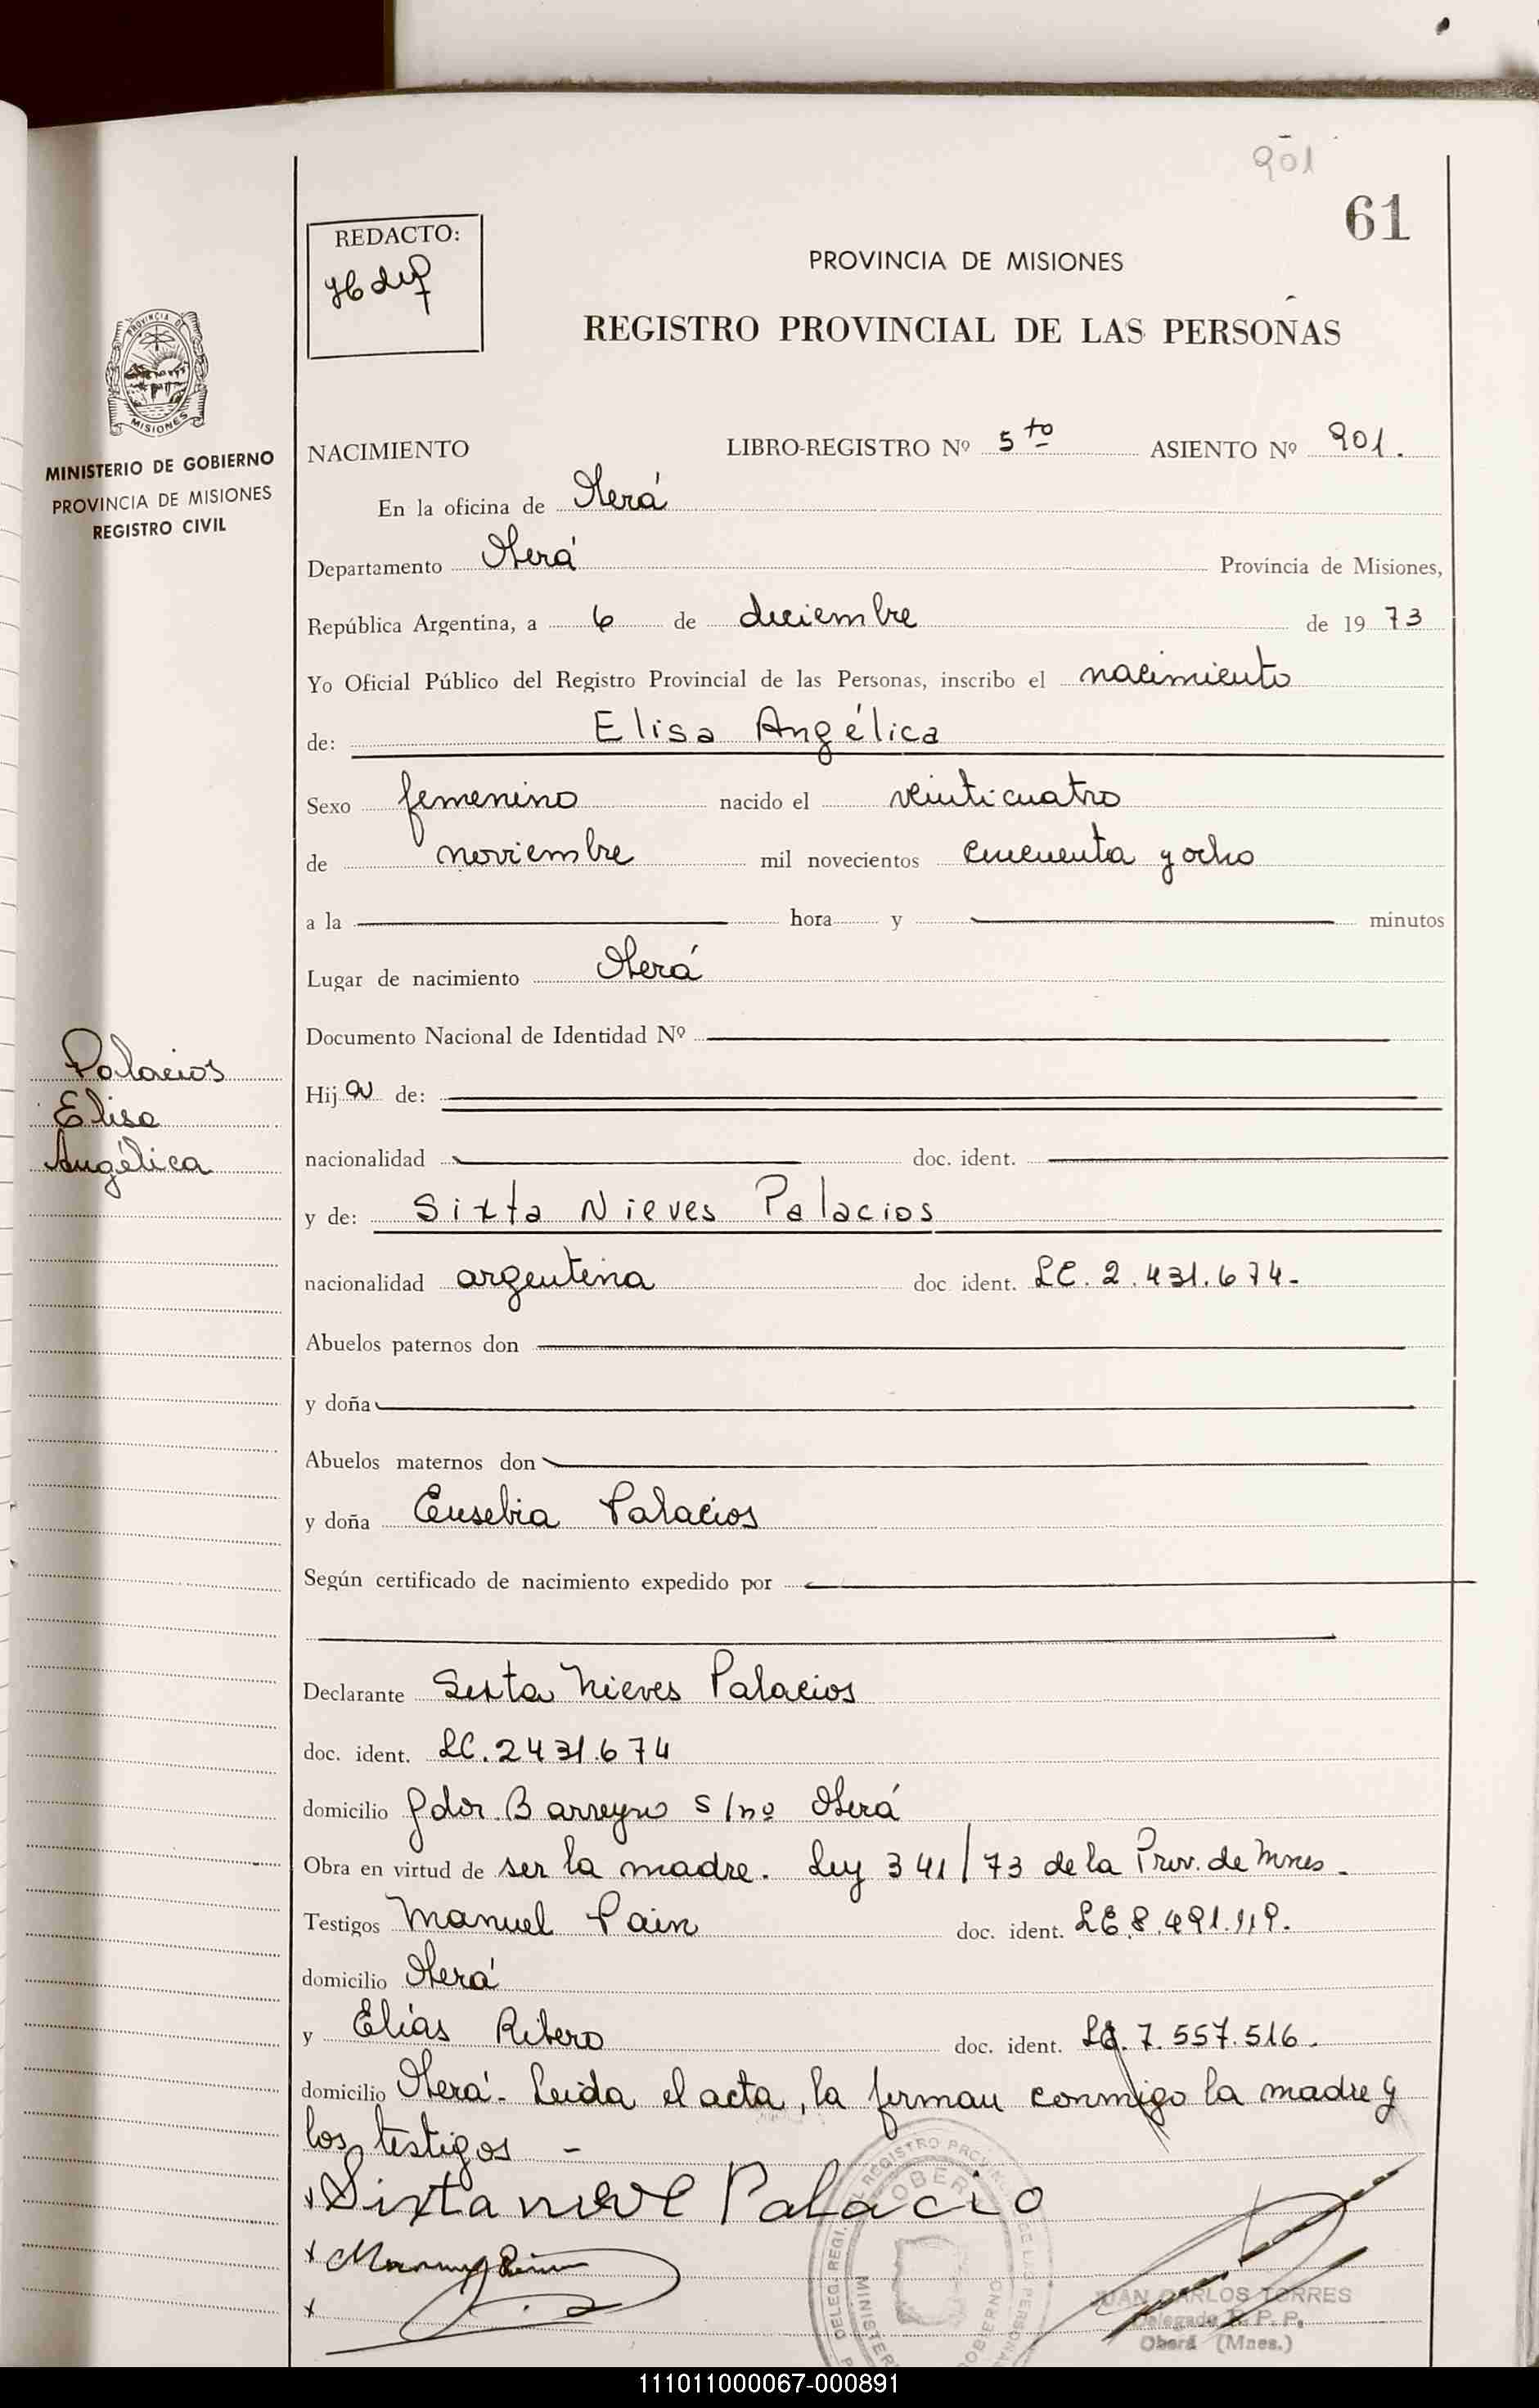 901
61
REDACTO:
PROVINCIA DE MISIONES
REGISTRO PROVINCIAL DE LAS PERSONAS
PROVINCIA DE
MISIONES
MINISTERIO DE GOBIERNO
PROVINCIA DE MISIONES
REGISTRO CIVIL
NACIMIENTO LIBRO-REGISTRO Nº 5to ASIENTO Nº 901.
En la oficina de Oberá
Departamento Oberá Provincia de Misiones,
República Argentina, a 6 de diciembre de 1973
Yo Oficial Público del Registro Provincial de las Personas, inscribo el nacimiento
de: Elisa Angélica
Sexo femenino nacido el veinticuatro
de noviembre mil novecientos cincuenta y ocho
a la hora y minutos
Lugar de nacimiento Oberá
Documento Nacional de Identidad Nº
Palacios
Elisa
Angélica
Hija de:
nacionalidad doc. ident.
y de: Sixta Nieves Palacios
nacionalidad argentina doc ident. LC. 2.431.674-
Abuelos paternos don
y doña
Abuelos maternos don
y doña Eusebia Palacios
Según certificado de nacimiento expedido por
Declarante Sixta Nieves Palacios
doc. ident. LC. 2431.674
domicilio Gdor. Barreyro s/nº Oberá
Obra en virtud de ser la madre. Ley 341/73 de la Prov. de Mnes.
Testigos Manuel Pain doc. ident. LE 8.491.119.
domicilio Oberá
y Elías Ribero doc. ident. 7.557.516.
domicilio Oberá. Leida el acta, la firman conmigo la madre y
los testigos -
x Sixta nieve Palacio
x
x
DELEG. REGISTRO PROVINCIAL DE LAS PERSONAS
JUAN CARLOS TORRES
Delegado R. P. P.
Oberá (Mnes.)
111011000067-000891